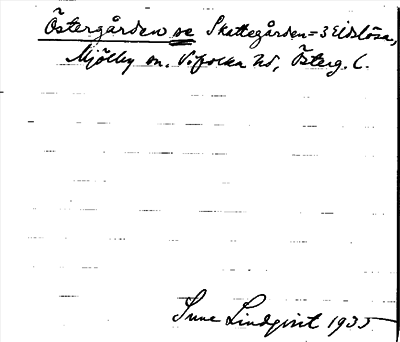 Östergården se Skattegården=3 Eidslösa,
Mjölby sn. Vifolka hd, Österg. l.
Sune Lindqvist 1935